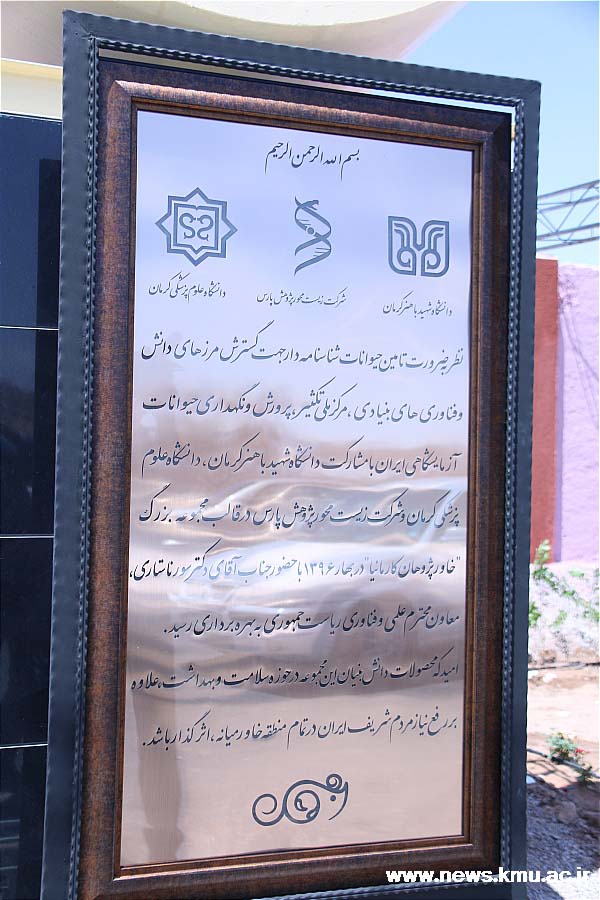 بسم الله الرحمن الرحیم
دانشگاه شهید باهنر کرمان
شرکت زیست محور پژوهش پارس
دانشگاه علوم پزشکی کرمان
نظر به ضرورت تامین حیوانات شناسنامه دار جهت گسترش مرزهای دانش
و فناوری های بنیادی، مرکز ملی تکثیر، پرورش و نگهداری حیوانات
آزمایشگاهی ایران با مشارکت دانشگاه شهید باهنر کرمان، دانشگاه علوم
پزشکی کرمان و شرکت زیست محور پژوهش پارس در قالب مجموعه بزرگ
"خاور پژوهان کارمانیا" در بهار ۱۳۹۶ با حضور جناب آقای دکتر سورنا ستاری،
معاون محترم علمی و فناوری ریاست جمهوری به بهره برداری رسید.
امید که محصولات دانش بنیان این مجموعه در حوزه سلامت و بهداشت، علاوه
بر رفع نیاز مردم شریف ایران در تمام منطقه خاورمیانه، اثرگذار باشد.
www.news.kmu.ac.ir